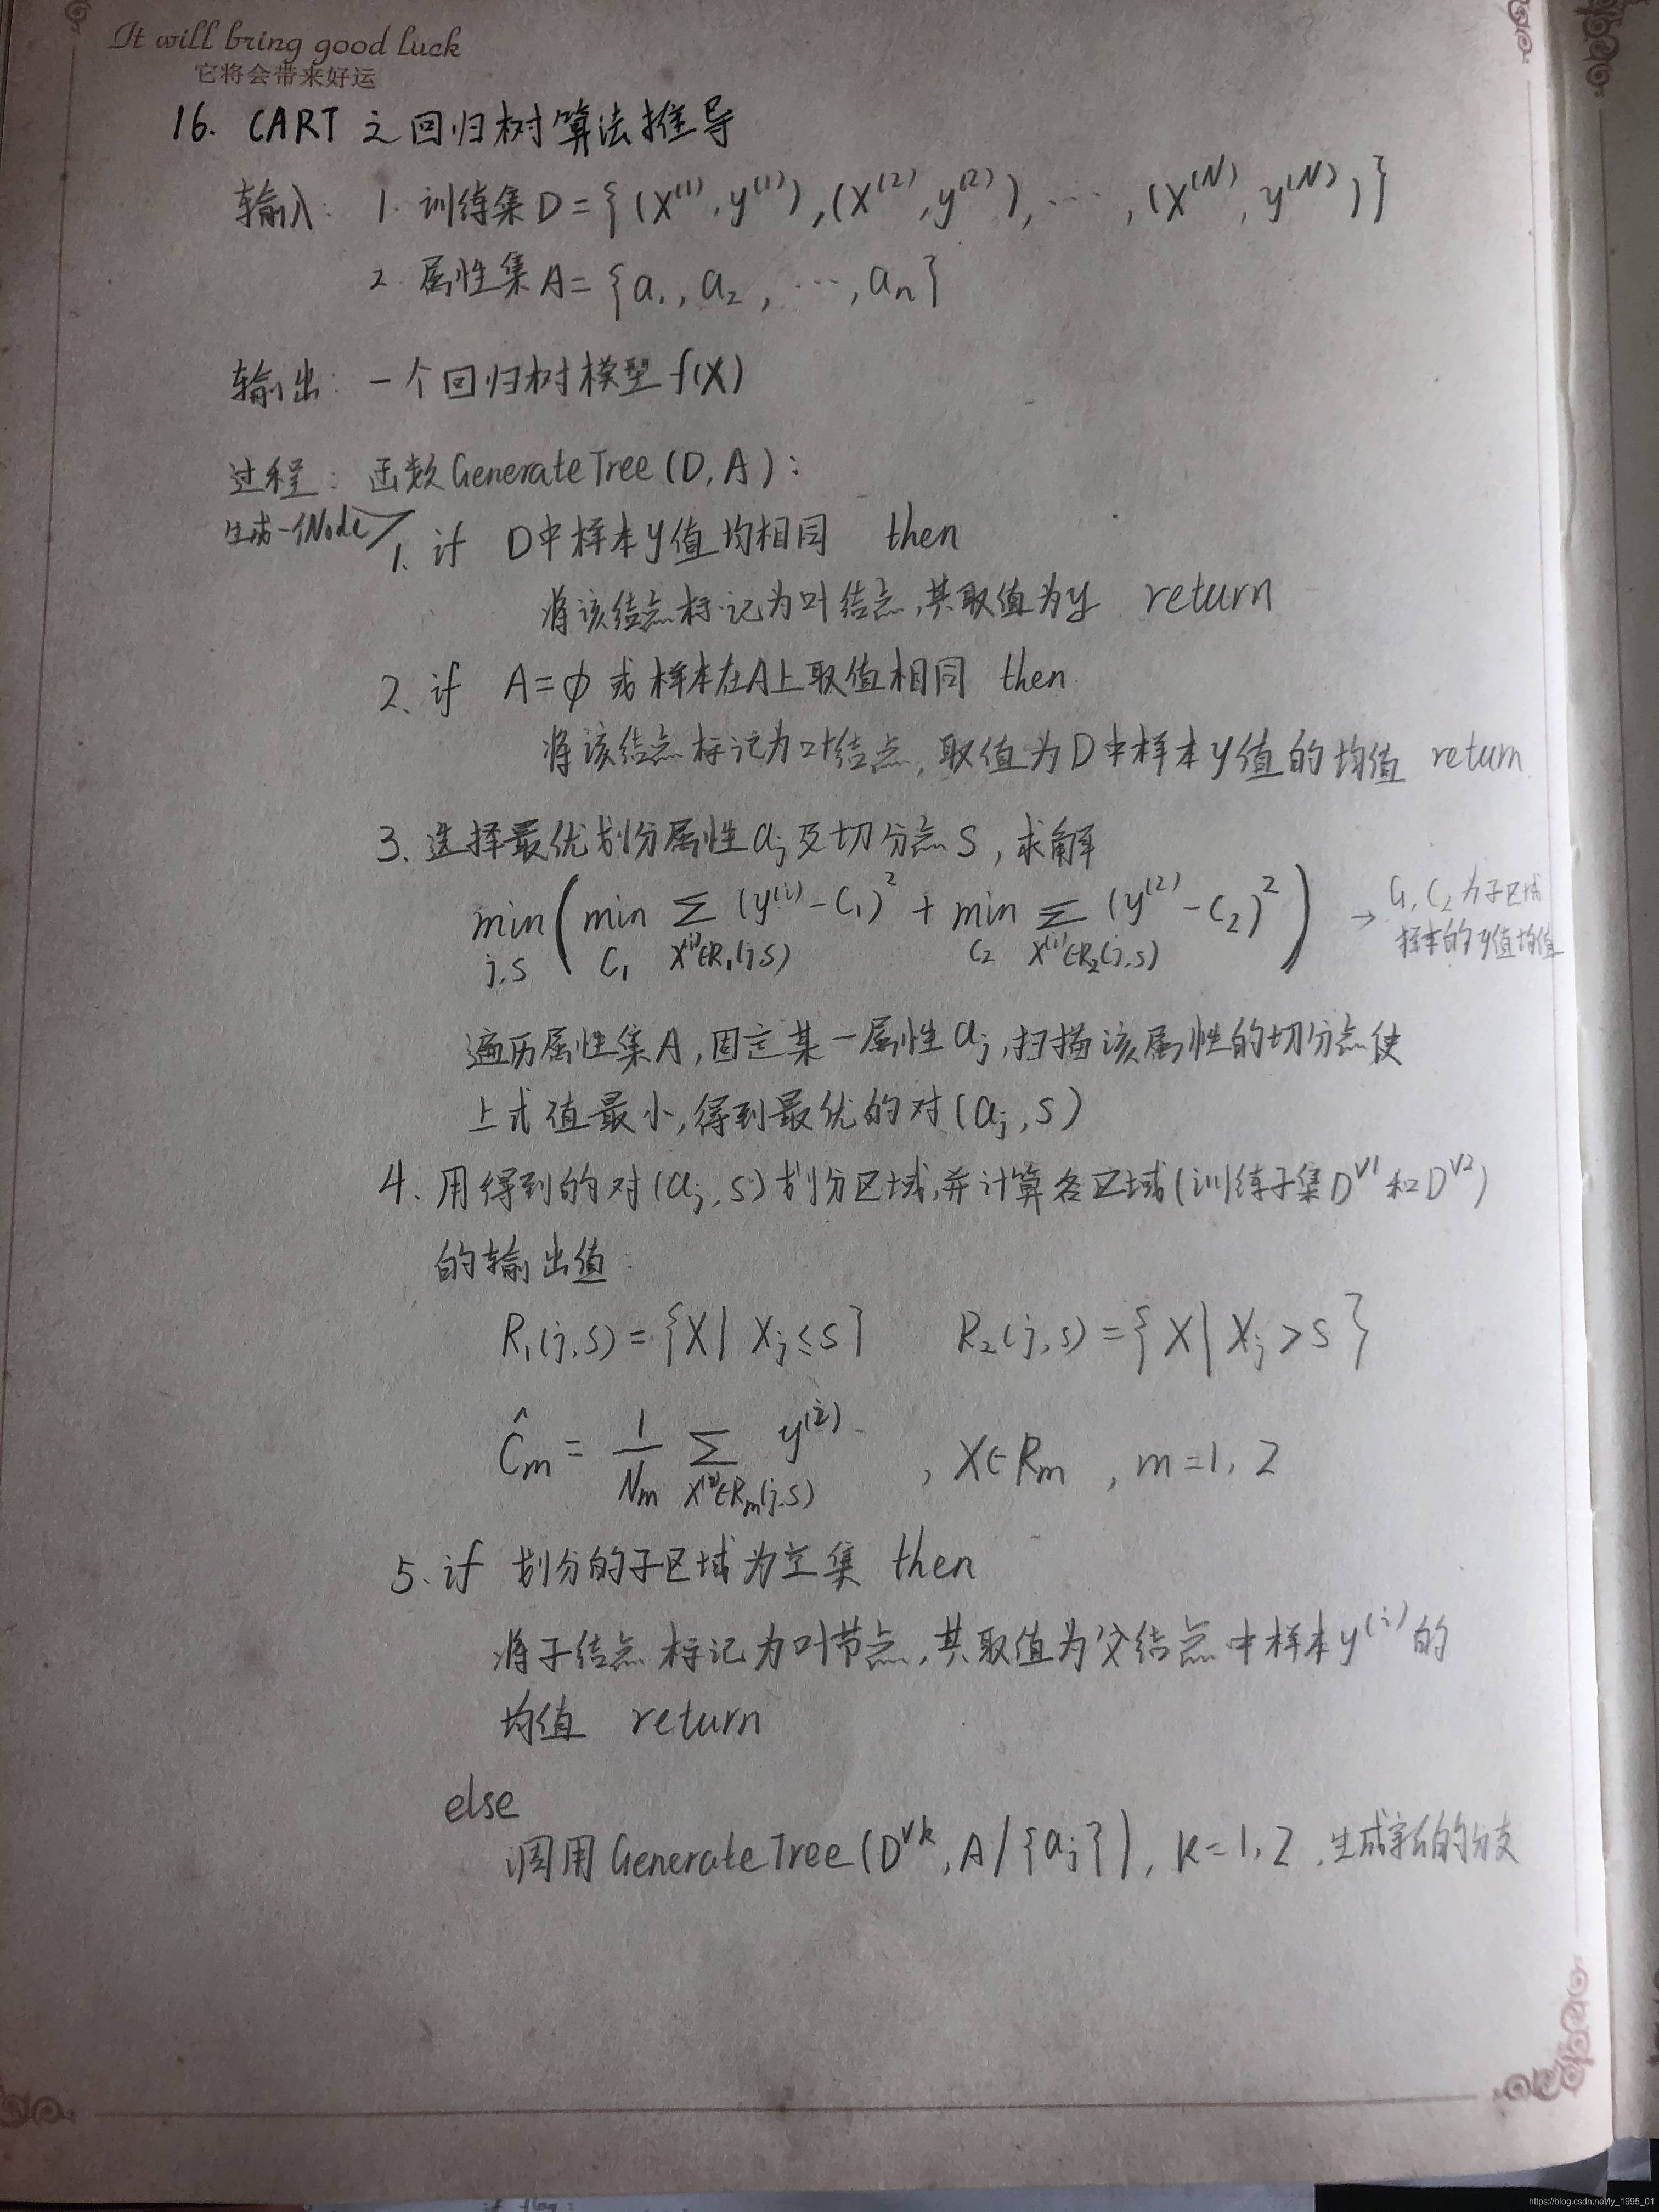 It will bring good luck
它将会带来好运
16. CART 之回归树算法推导
输入: 1. 训练集 D = {(X⁽¹⁾, y⁽¹⁾), (X⁽²⁾, y⁽²⁾), ⋯, (X⁽ᴺ⁾, y⁽ᴺ⁾)}
2. 属性集 A = {a₁, a₂, ⋯, aₙ}
输出: 一个回归树模型 f(X)
过程: 函数 GenerateTree (D, A):
生成一个Node
1. if D中样本y值均相同 then
将该结点标记为叶结点,其取值为y return
2. if A=∅ 或样本在A上取值相同 then
将该结点标记为叶结点,取值为D中样本y值的均值 return
3. 选择最优划分属性 aⱼ 及切分点 S, 求解
min_{j,s} ( min_{C₁} Σ_{X⁽ⁱ⁾∈R₁(j,s)} (y⁽ⁱ⁾ - C₁)² + min_{C₂} Σ_{X⁽ⁱ⁾∈R₂(j,s)} (y⁽²⁾ - C₂)² ) → C₁, C₂ 为子区域
样本的y值均值
遍历属性集A,固定某一属性aⱼ,扫描该属性的切分点使
上式值最小,得到最优的对(aⱼ, s)
4. 用得到的对(aⱼ, s)划分区域,并计算各区域(训练子集Dⱽ¹和Dⱽ²)
的输出值:
R₁(j,s) = {X | Xⱼ ≤ s} R₂(j,s) = {X | Xⱼ > s}
Ĉₘ = 1/Nₘ Σ_{X⁽ⁱ⁾∈Rₘ(j,s)} y⁽ⁱ⁾, X∈Rₘ, m=1,2
5. if 划分的子区域为空集 then
将子结点标记为叶节点,其取值为父结点中样本y⁽ⁱ⁾的
均值 return
else
调用 GenerateTree(Dⱽᵏ, A/{aⱼ}), k=1,2,生成新的分支
if flag:
https://blog.csdn.net/ly_1995_01